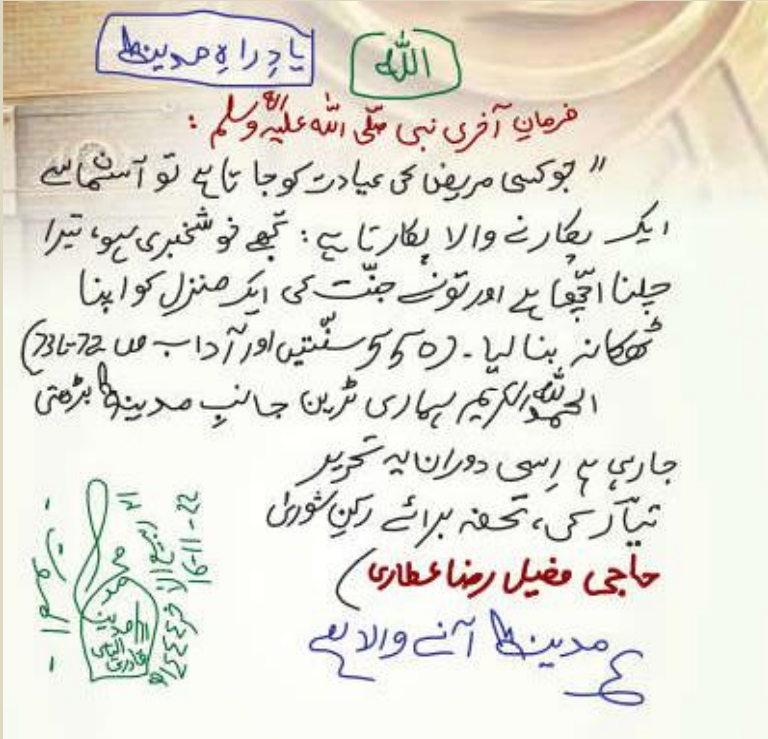 اللہ
یادِ راہِ مدینہ
فرمانِ آخری نبی صلّی اللہ علیہ واٰلہ وسلم :
"جو کسی مریض کی عیادت کو جاتا ہے تو آسمان سے
ایک پکارنے والا پکارتا ہے : تجھے خوشخبری ہو، تیرا
چلنا اچّھا ہے اور تونے جنّت کی ایک منزل کو اپنا
ٹھکانہ بنا لیا۔ (550 سنّتیں اور آداب ص 72 تا 73)
الحمدللہ الکریم ہماری ٹرین جانبِ مدینہ بڑھتی
جارہی ہے اِسی دوران یہ تحریر
تیّار کی، تحفہ برائے رکنِ شوریٰ
حاجی فضیل رضا عطاری
مدینہ آنے والا ہے
محمد
الیاس
قادری
۲۱ ربیع الآخر ۱۴۴۴ھ
16-11-22